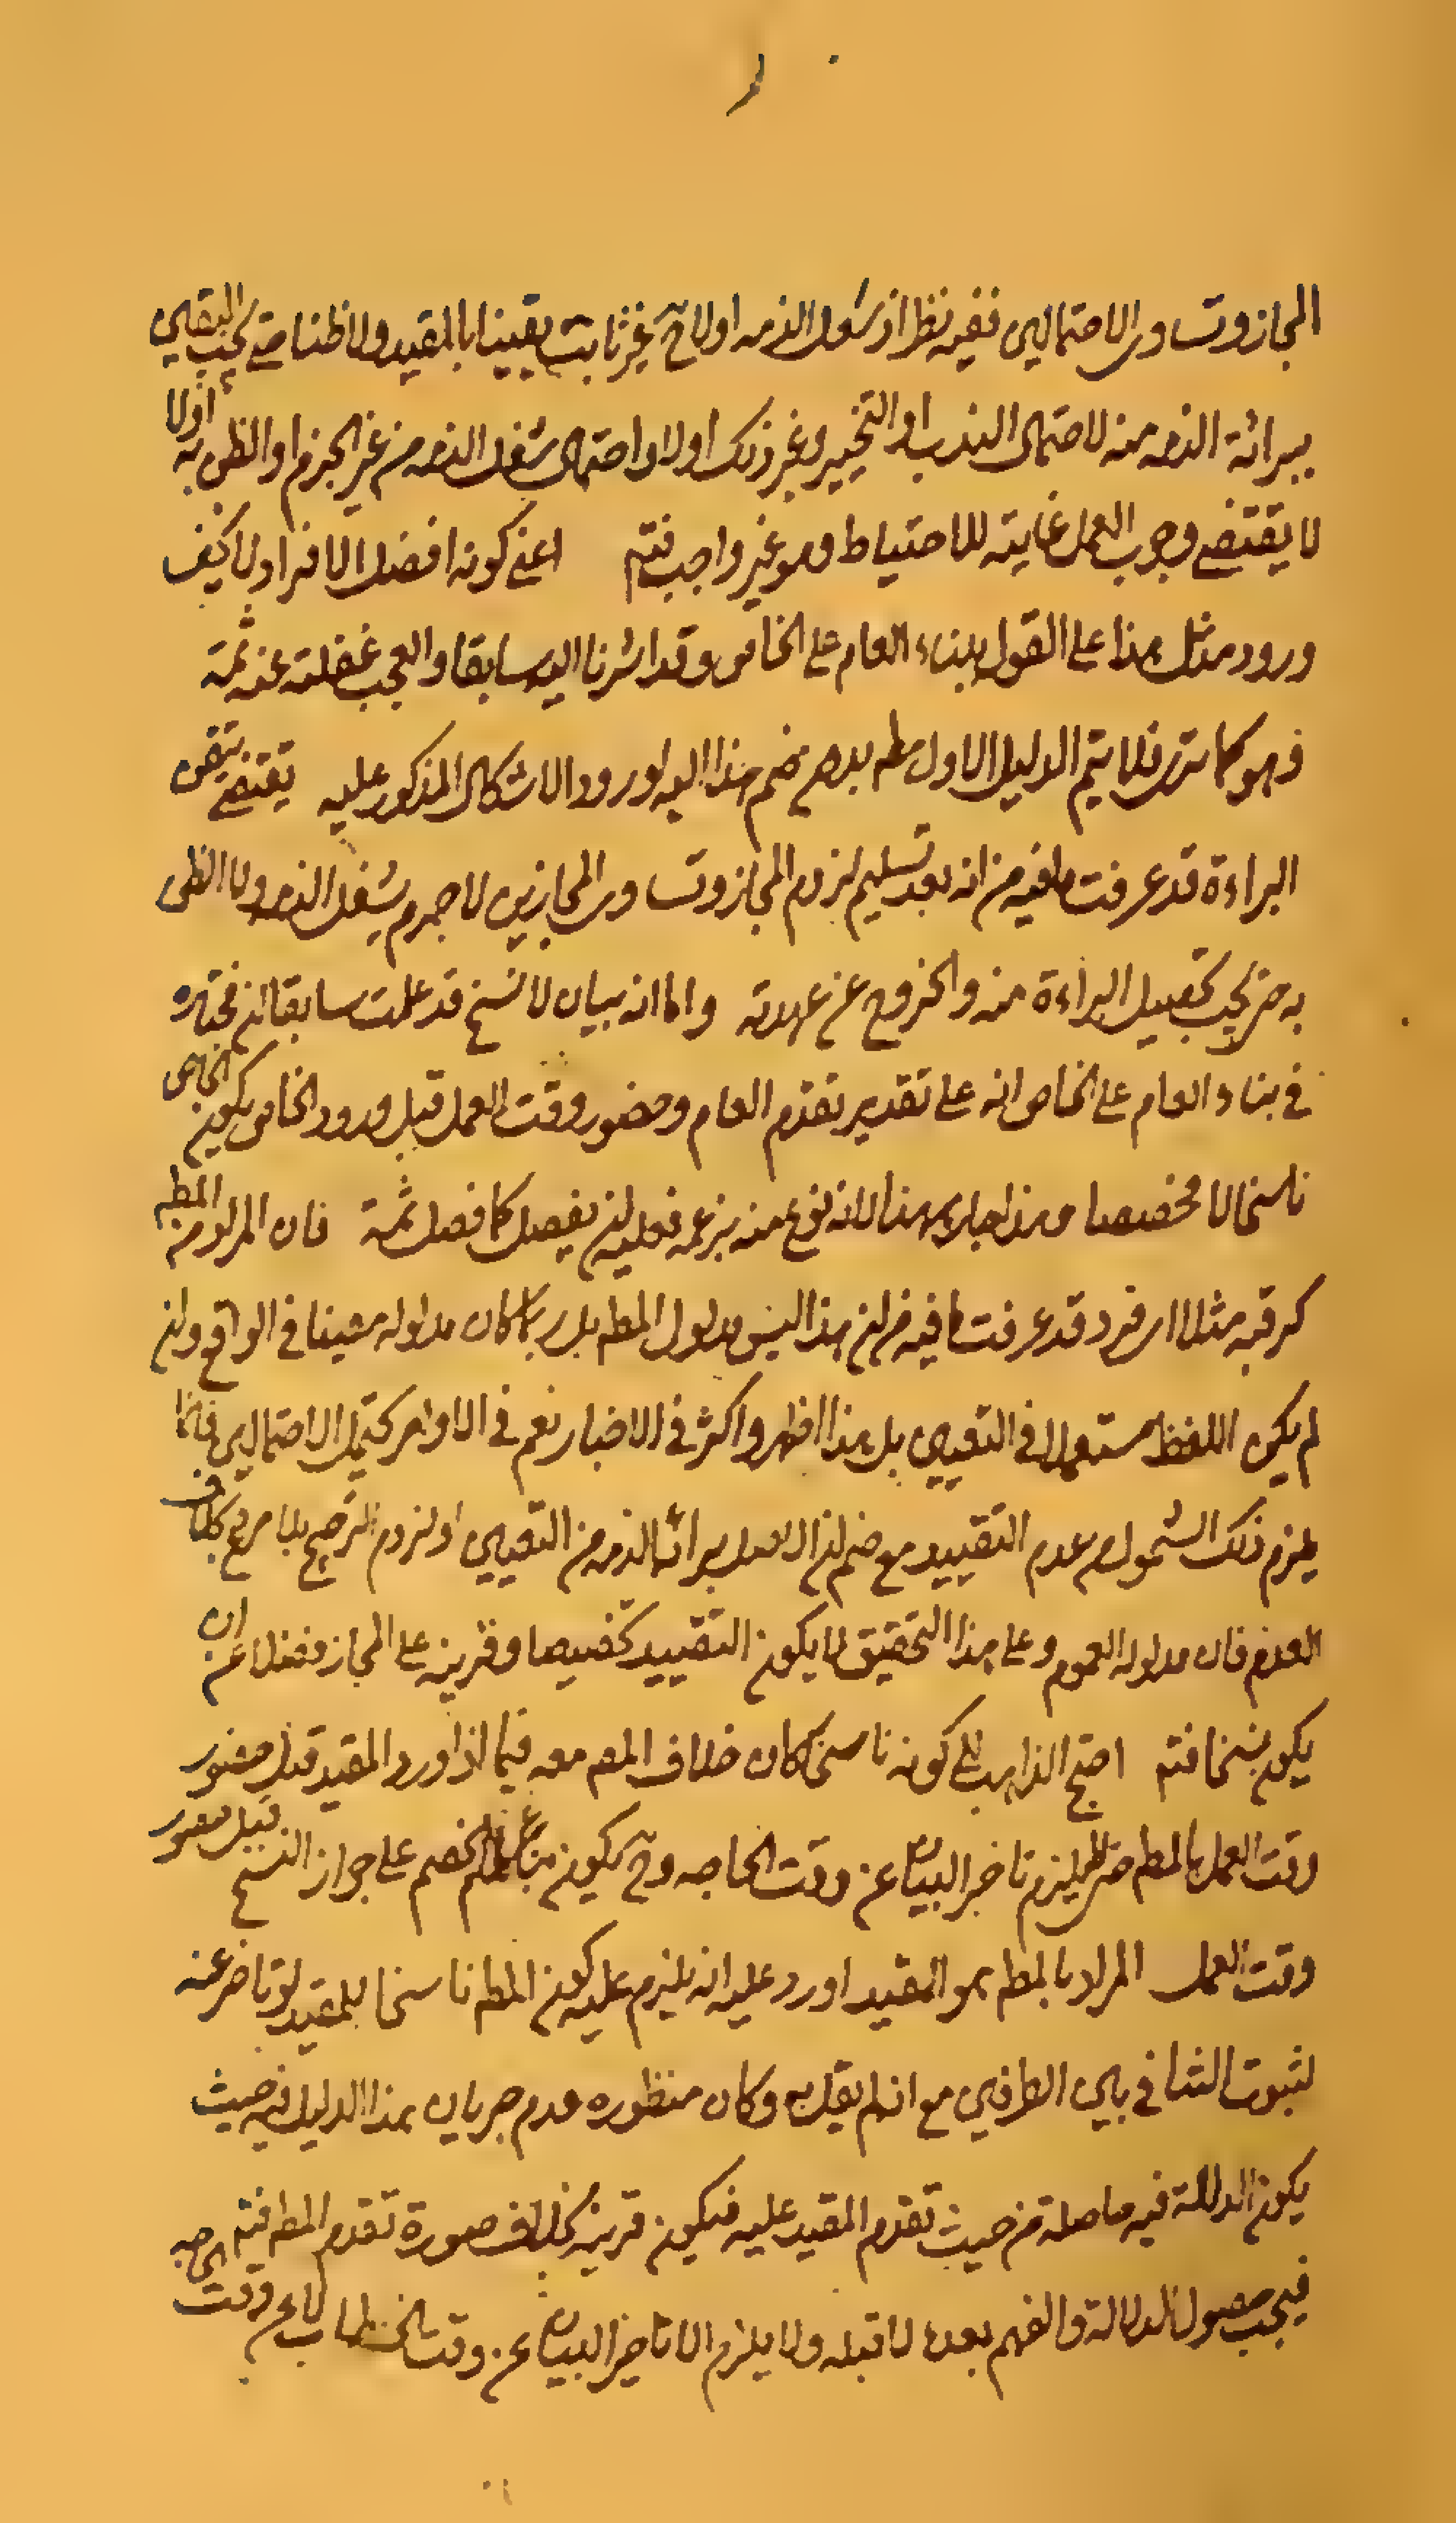 المجاز وتساوى الاحتمالين ففيه نظر اذ شغل الذمه اولا ح غير ثابت يقينا بالمقيد ولا ظنا حتى يجب اليقين
ببرائة الذمه منه لاحتمال الندب او التخيير وغير ذلك اولا واحتمال شغل الذمه من غير الجزم او الظن به اولا
لا يقتضى وجوب العمل غايته للاحتياط وهو غير واجب فتم اعنى كونه افضل الافراد لا كيف
ورود مثل هذا على القول ببناء العام على الخاص وقد اشرنا اليه سابقا والعجب غفلته عنه ثمة
فهو كما ترى فلا يتم الدليل الاول مط بدون ضم هذا اليه لورود الاشكال المذكور عليه يقتضى تيقن
البراءة قد عرفت ما فيه من انه بعد تسليم لزوم المجاز وتساوى المجازين لا جرم بشغل الذمه ولا الظن
به حتى يجب تحصيل البراءة منه والخروج عن عهدته واما انه بيان لا نسخ قد علمت سابقا ان مختاره
فى بناء العام على الخاص انه على تقدير تقدم العام وحضور وقت العمل قبل ورود الخاص يكون الخاص
ناسخا لا مخصصا وهذا جار هيهنا لانه نوع منه بزعمه فعليه ان يفصل كما فصل ثمة فان المراد من المط
كرقبه مثلا اى فرد قد عرفت ما فيه من ان هذا ليس مدلول المط بل ربما كان مدلوله معينا فى الواقع وان
لم يكن اللفظ مستعملا فى التعيين بل هذا اظهر واكثر فى الاخبار نعم فى الاوامر يحتمل الاحتمالين فانما
يلزم ذلك الشمول من عدم التقييد مع ضم ان الاصل برائة الذمه من التعيين او لزوم الترجيح بلا مرجح بخلاف
العدم فان مدلوله العموم وعلى هذا التحقيق لا يكون التقييد تخصيصا وقرينه على المجاز فضلا عن ان
يكون نسخا فتم احتج الذاهب الى كونه ناسخا كان خلاف المص معه فيما اذا ورد المقيد قبل حضور
وقت العمل بالمط حتى لا يلزم تاخير البيان عن وقت الحاجه وح يكون بناء الخصم على جواز النسخ قبل حضور
وقت العمل المراد بالمط هو المقيد اورد عليه انه يلزم عليه كون المط ناسخا للمقيد لو تاخر عنه
لثبوت التنافى بين الطرفين مع انه لم يقل به وكان منظوره عدم جريان هذا الدليل فيه حيث
يكون الدلالة فيه حاصلة من حيث تقدم المقيد عليه فيكون قرينة بخلاف صورة تقدم المط فتم
فيجب حصول الدلالة والفهم بعده لا قبله ولا يلزم الا تاخير البيان عن وقت الخطاب لا عن وقت الحاجه